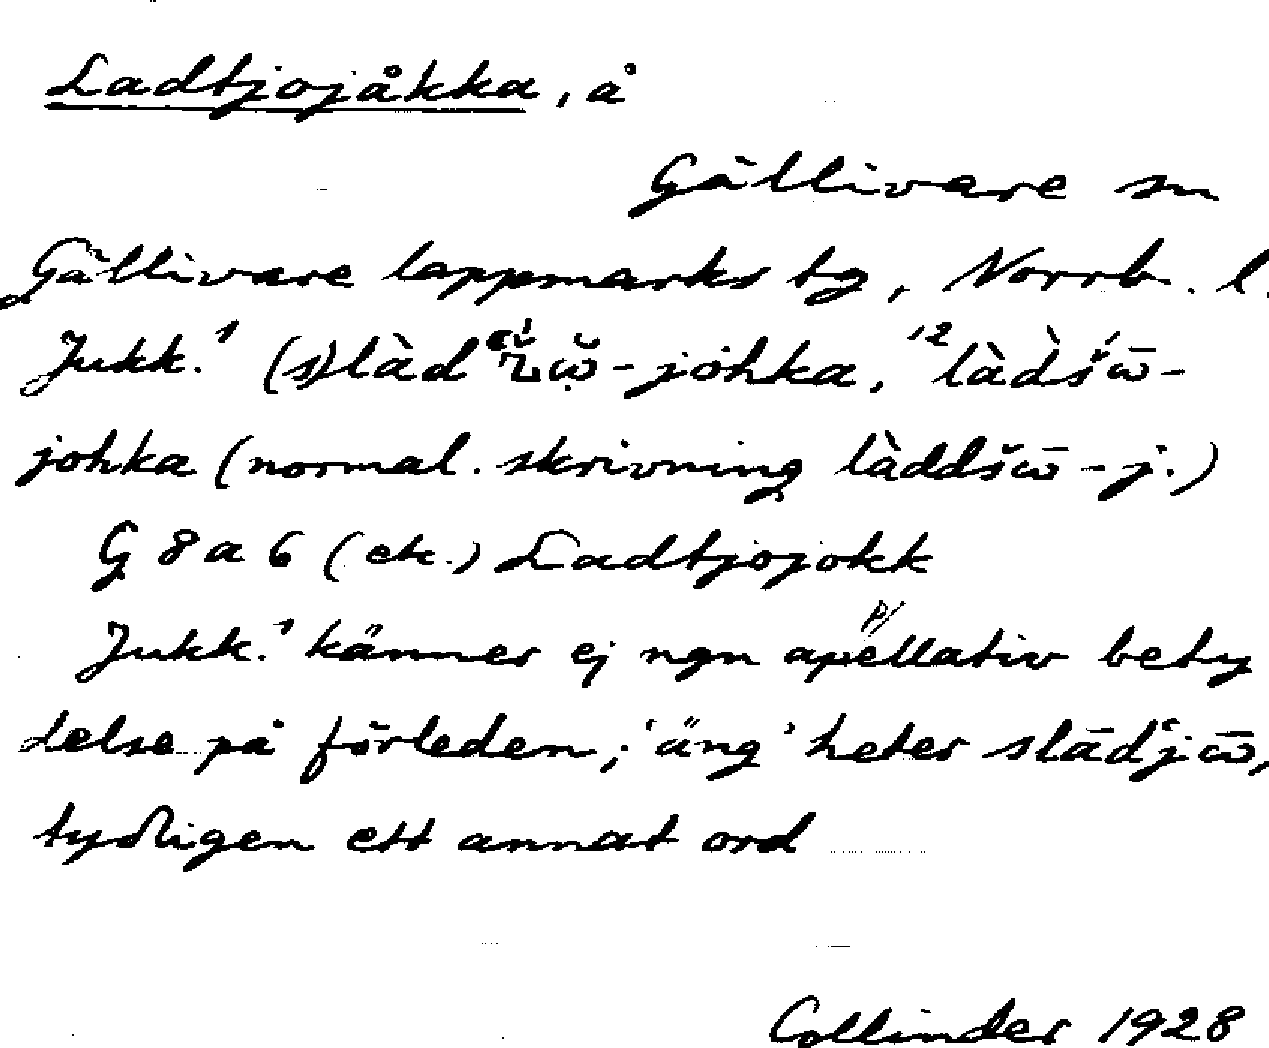 Ladtjojåkka, å
Gällivare sn
Gällivare lappmarks tg, Norrb. l.
Jukk.¹ (s)làd -johka, ² làdšω̄-
johka (normal. skrivning làddšω̄-j.)
G 8 a 6 (ek.) Ladtjojokk
Jukk.¹ känner ej ngn apellativ bety
delse på förleden; 'äng' heter slādjω̄,
tydligen ett annat ord
Collinder 1928